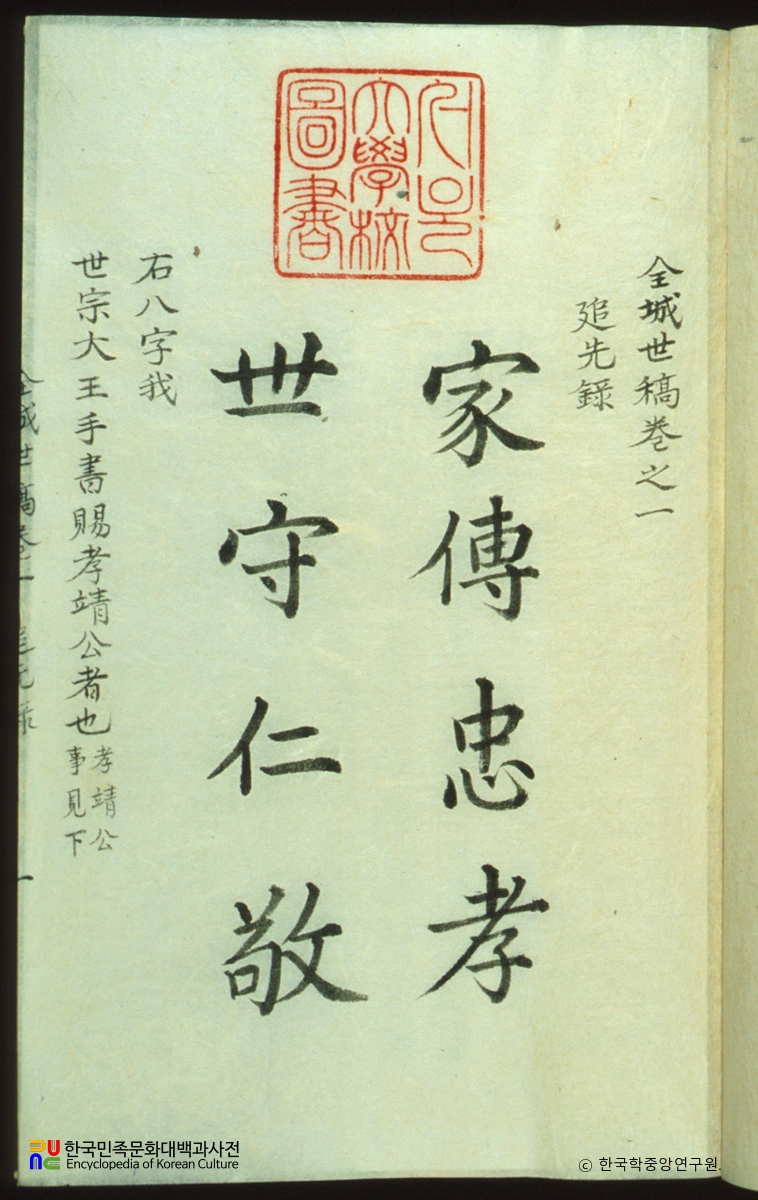 서울
大學校
圖書
全城世稿卷之一
追先錄
家傳忠孝
世守仁敬
右八字我
世宗大王手書賜孝靖公者也孝靖公
事見下
全城世稿卷一 追先錄 一
한국민족문화대백과사전
Encyclopedia of Korean Culture
© 한국학중앙연구원.